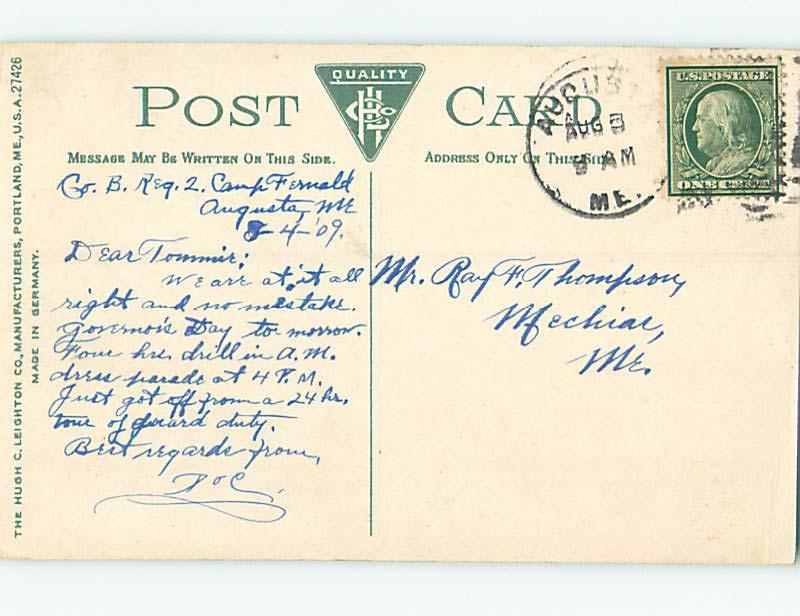 THE HUGH C. LEIGHTON CO., MANUFACTURERS, PORTLAND, ME., U.S.A. 27426
MADE IN GERMANY.
POST CARD
QUALITY
MESSAGE MAY BE WRITTEN ON THIS SIDE.
ADDRESS ONLY ON THIS SIDE
AUGUSTA
AUG
AM
ME.
U.S. POSTAGE
ONE CENT
Co. B. Reg. 2. Camp Fernald
Augusta, Me
8-4-'09.
Dear Tommie:
We are at it all
right and no mistake.
Governor's Day to morrow.
Four hrs. drill in A.M.
dress parade at 4 P.M.
Just got off from a 24 hr.
tour of guard duty.
Best regards from,
Doc.
Mr. Ray F. Thompson,
Mechias,
Me.